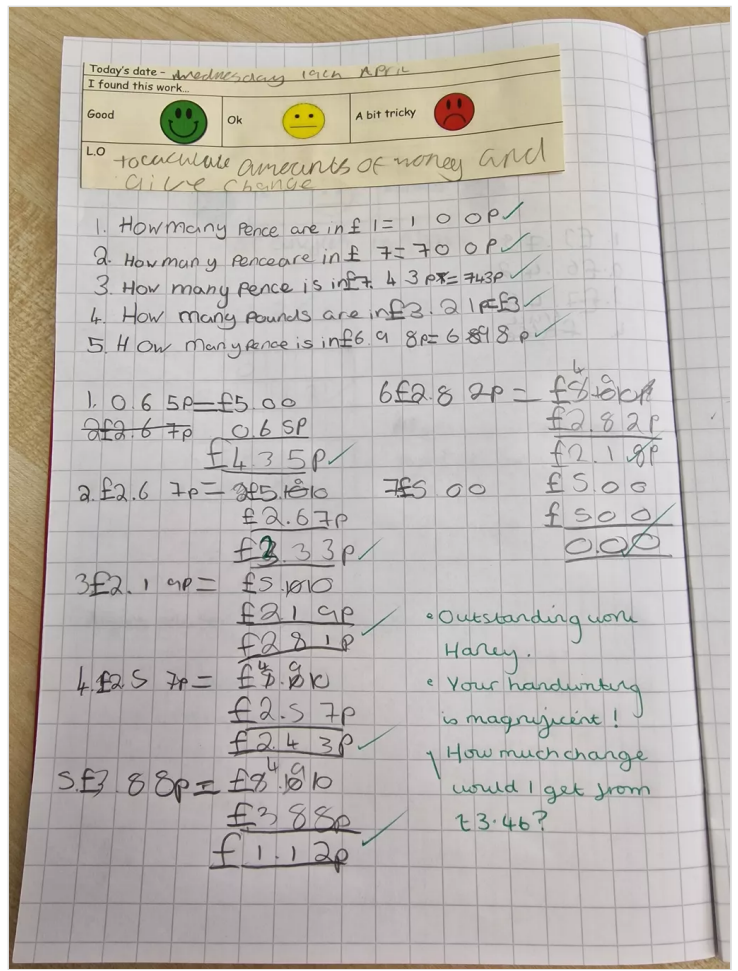 Today's date - Wednesday 19th April
I found this work...
Good
Ok
A bit tricky
L.O to caculate amounts of money and
give change
1. How many Pence are in £1 = 100p
2. How many pence are in £7 = 700p
3. How many pence is in £7.43p = 743p
4. How many pounds are in £3.21p = £3
5. How many pence is in £6.98p = 698p
1. 0.65p = £5.00
2 £2.67p 0.65p
£4.35p
2. £2.67p = £5.00
£2.67p
£2.33p
3 £2.19p = £5.00
£2.19p
£2.81p
4. £2.57p = £5.00
£2.57p
£2.43p
5. £3.88p =
£3.88p
£1.12p
6 £2.82p =
£2.82p
£2.18p
7 £5.00 £5.00
£5.00
0.00
• Outstanding work
Harley.
• Your handwriting
is magnificent!
How much change
would I get from
£3.46?